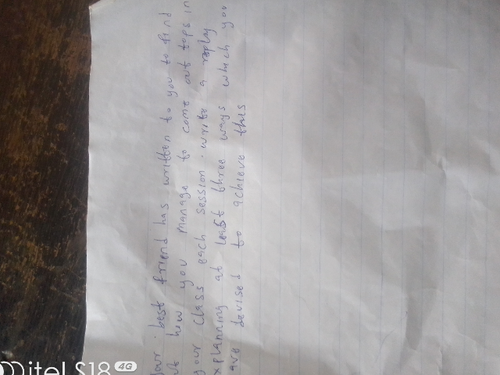 our best friend has written to you to find
ut how you manage to come out tops in
your class each session. write a reply
xplanning at least three ways which you
ave devised to achieve this
itel S18 4G